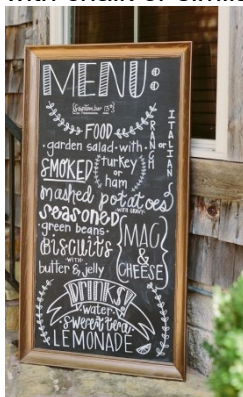 MENU:
September 13th
FOOD
garden salad with
RANCH or ITALIAN
SMOKED turkey or ham
mashed potatoes
WITH GRAVY
seasoned
green beans
BISCUITS
WITH
butter & jelly
MAC & CHEESE
DRINKS
water
sweet tea
LEMONADE